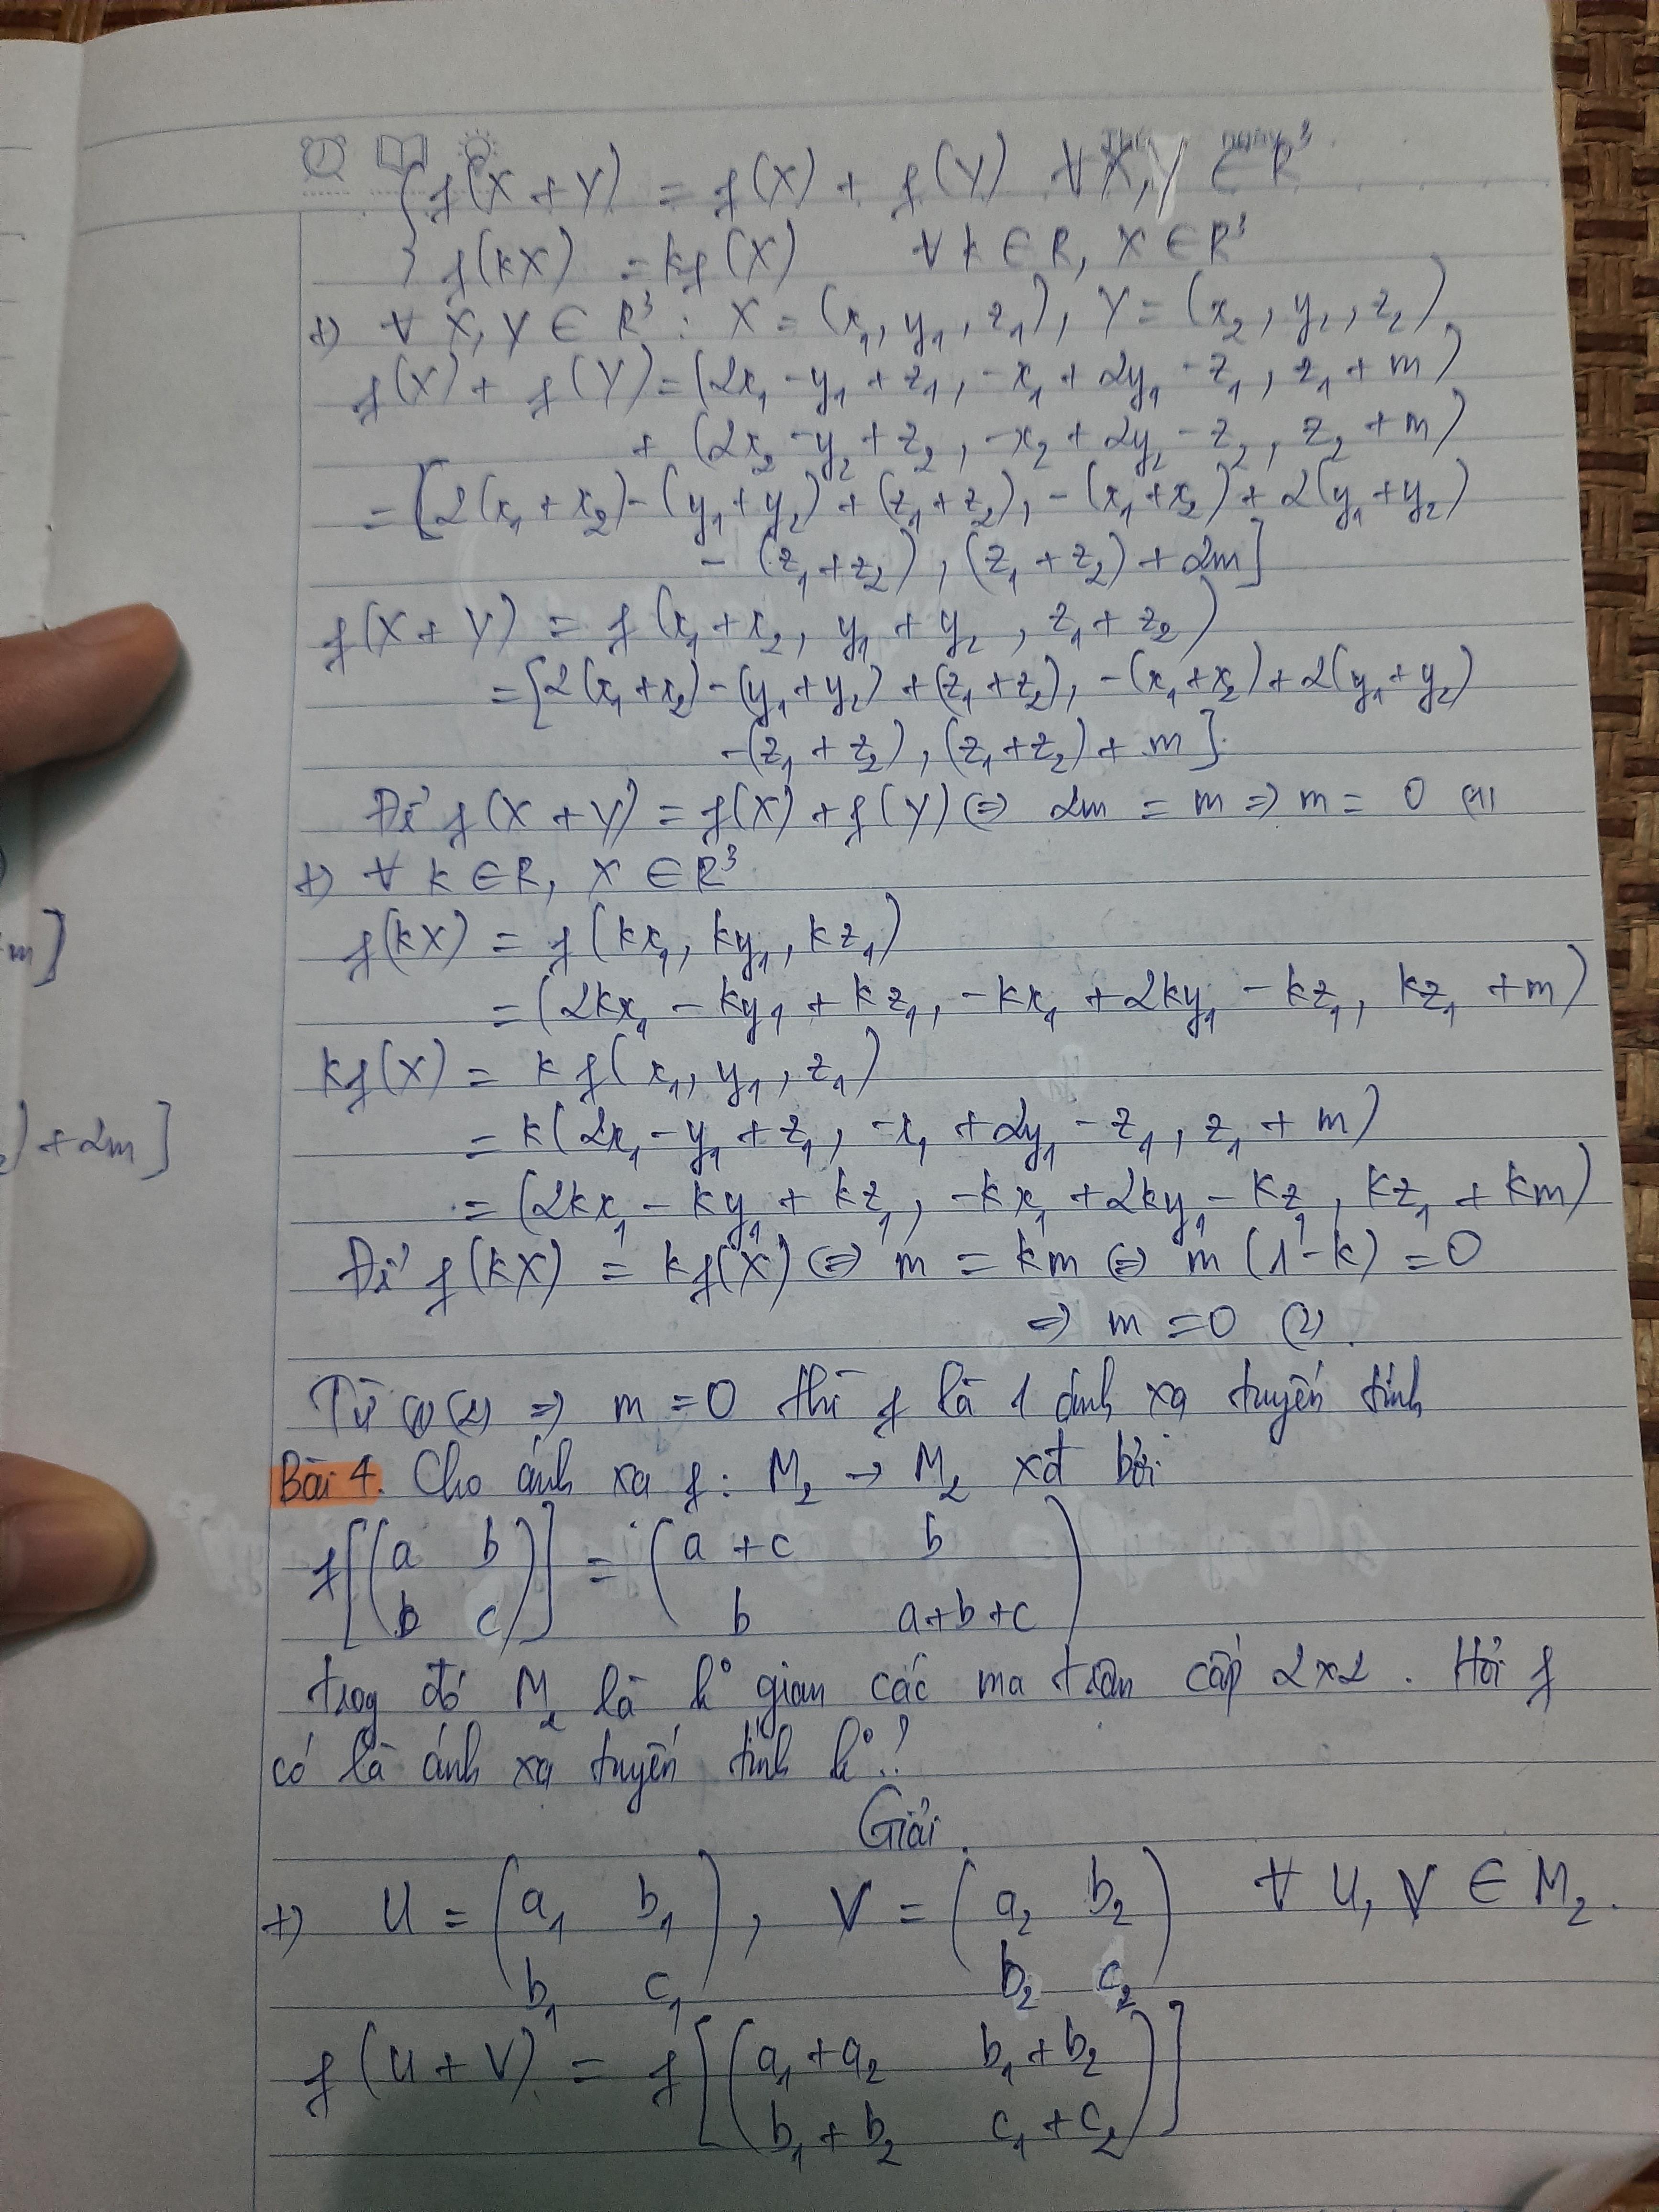 f(X + Y) = f(X) + f(Y) ∀ X, Y ∈ R³
f(kX) = kf(X) ∀ k ∈ R, X ∈ R³
+) ∀ X, Y ∈ R³ : X = (x₁, y₁, z₁), Y = (x₂, y₂, z₂)
f(X) + f(Y) = (2x₁ - y₁ + z₁, -x₁ + 2y₁ - z₁, z₁ + m)
+ (2x₂ - y₂ + z₂, -x₂ + 2y₂ - z₂, z₂ + m)
= [2(x₁ + x₂) - (y₁ + y₂) + (z₁ + z₂), -(x₁ + x₂) + 2(y₁ + y₂)
- (z₁ + z₂), (z₁ + z₂) + 2m]
f(X + Y) = f(x₁ + x₂, y₁ + y₂, z₁ + z₂)
= [2(x₁ + x₂) - (y₁ + y₂) + (z₁ + z₂), -(x₁ + x₂) + 2(y₁ + y₂)
-(z₁ + z₂), (z₁ + z₂) + m]
Để f(X + Y) = f(X) + f(Y) ⇔ 2m = m ⇒ m = 0 (1)
+) ∀ k ∈ R, X ∈ R³
f(kX) = f(kx₁, ky₁, kz₁)
= (2kx₁ - ky₁ + kz₁, -kx₁ + 2ky₁ - kz₁, kz₁ + m)
kf(X) = kf(x₁, y₁, z₁)
= k(2x₁ - y₁ + z₁, -x₁ + 2y₁ - z₁, z₁ + m)
= (2kx₁ - ky₁ + kz₁, -kx₁ + 2ky₁ - kz₁, kz₁ + km)
Để f(kX) = kf(X) ⇔ m = km ⇔ m(1 - k) = 0
⇒ m = 0 (2).
Từ (1) (2) ⇒ m = 0 thì f là 1 ánh xạ tuyến tính
Bài 4. Cho ánh xạ f : M₂ → M₂ xđ bởi
f[(a b
b c)] = (a + c b
b a + b + c)
trog đó M₂ là k° gian các ma trận cấp 2x2. Hỏi f
có là ánh xạ tuyến tính k°?
Giải.
+) U = (a₁ b₁
b₁ c₁), V = (a₂ b₂
b₂ c₂) ∀ U, V ∈ M₂.
f(U + V) = f[(a₁ + a₂ b₁ + b₂
b₁ + b₂ c₁ + c₂)]
m]
) + 2m]